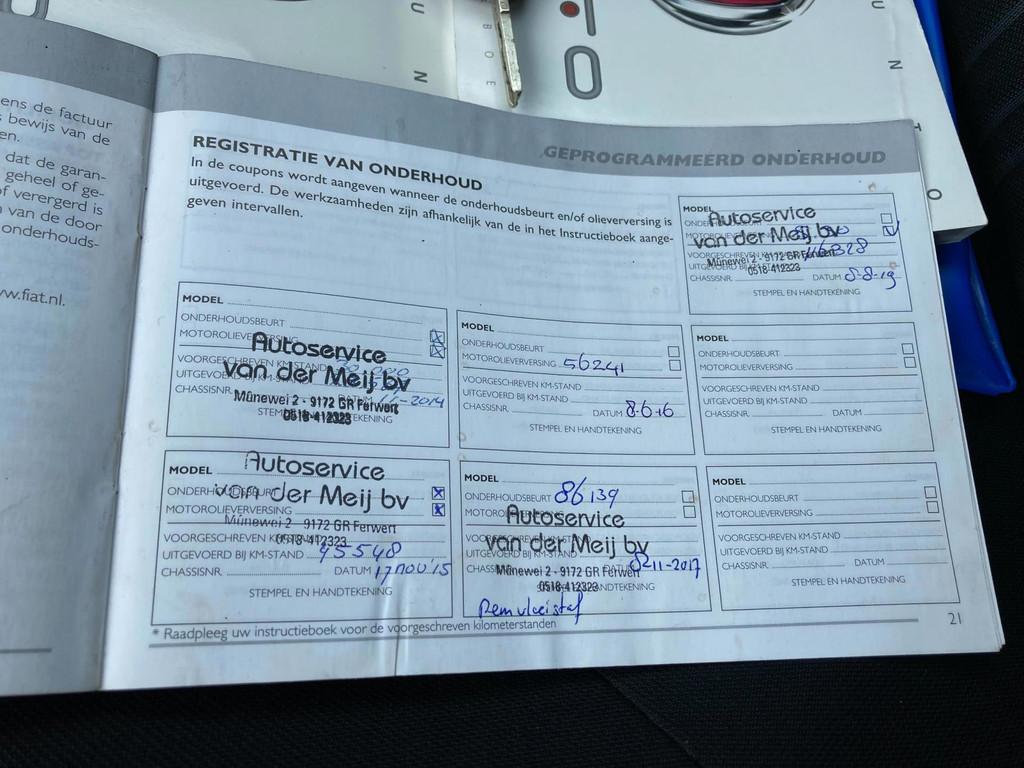 ens de factuur
bewijs van de
en.
dat de garan-
geheel of ge-
of verergerd is
van de door
onderhouds-
w.fiat.nl.
GEPROGRAMMEERD ONDERHOUD
REGISTRATIE VAN ONDERHOUD
In de coupons wordt aangeven wanneer de onderhoudsbeurt en/of olieverversing is
uitgevoerd. De werkzaamheden zijn afhankelijk van de in het Instructieboek aange-
geven intervallen.
MODEL
Autoservice
van der Meij bv
Mûnewei 2 - 9172 GR Ferwert
0518-412323
CHASSISNR. DATUM 8-8-19
STEMPEL EN HANDTEKENING
MODEL
ONDERHOUDSBEURT
MOTOROLIEVERVERSING
Autoservice
VOORGESCHREVEN KM-STAND
van der Meij bv
UITGEVOERD BIJ KM-STAND
Mûnewei 2 - 9172 GR Ferwert
CHASSISNR. 2014
0518-412323
MODEL
ONDERHOUDSBEURT
MOTOROLIEVERVERSING 56241
VOORGESCHREVEN KM-STAND
UITGEVOERD BIJ KM-STAND
CHASSISNR. DATUM 8-6-16
STEMPEL EN HANDTEKENING
MODEL
ONDERHOUDSBEURT
MOTOROLIEVERVERSING
VOORGESCHREVEN KM-STAND
UITGEVOERD BIJ KM-STAND
CHASSISNR. DATUM
STEMPEL EN HANDTEKENING
MODEL
Autoservice
ONDERHOUDSBEURT
van der Meij bv
MOTOROLIEVERVERSING
Mûnewei 2 - 9172 GR Ferwert
VOORGESCHREVEN KM-STAND
0518-412323
UITGEVOERD BIJ KM-STAND 45548
CHASSISNR. DATUM 17 nov 15
STEMPEL EN HANDTEKENING
MODEL
ONDERHOUDSBEURT 86139
Autoservice
van der Meij bv
Mûnewei 2 - 9172 GR Ferwert
8-11-2017
0518-412323
MODEL
ONDERHOUDSBEURT
MOTOROLIEVERVERSING
VOORGESCHREVEN KM-STAND
UITGEVOERD BIJ KM-STAND
CHASSISNR. DATUM
STEMPEL EN HANDTEKENING
* Raadpleeg uw instructieboek voor de voorgeschreven kilometerstanden
21